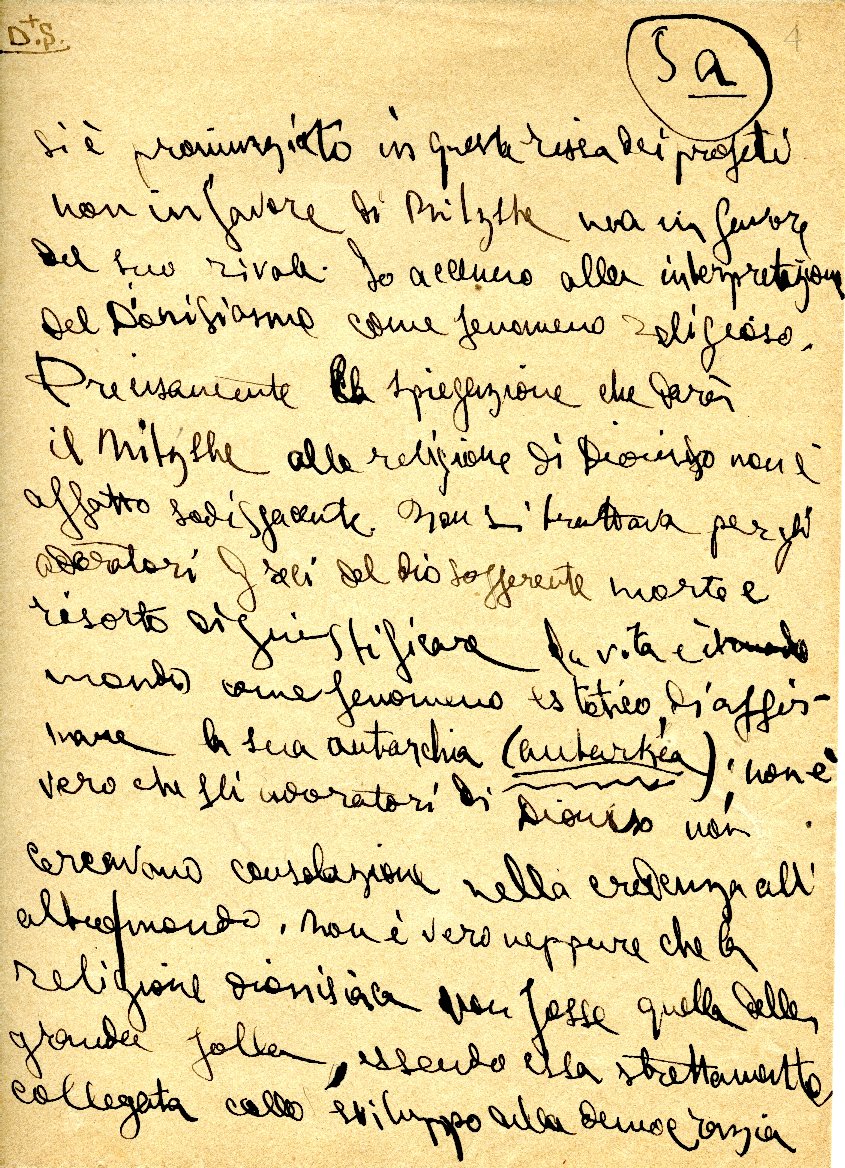 D.S.
5a
4
si è pronunziato in questa rissa dei profeti
non in favore di Nitzshe ma in favore
del suo rivale. Io accenno alla interpretazione
del Dionisiasmo come fenomeno religioso.
Precisamente la spiegazione che darà
il Nitzshe alla religione di Dioniso non è
affatto sodisfacente. Non si trattava per gli
adoratori Greci del dio sofferente morto e
risorto di giustificare la vita e il mondo
mondo come fenomeno estetico, di affer-
mare la sua autarchia (autarkéa); non è
vero che gli adoratori di Dioniso non
cercavano consolazione nella credenza all'
altro mondo. Non è vero neppure che la
religione dionisiaca non fosse quella della
grande folla, essendo essa strettamente
collegata collo sviluppo della democrazia